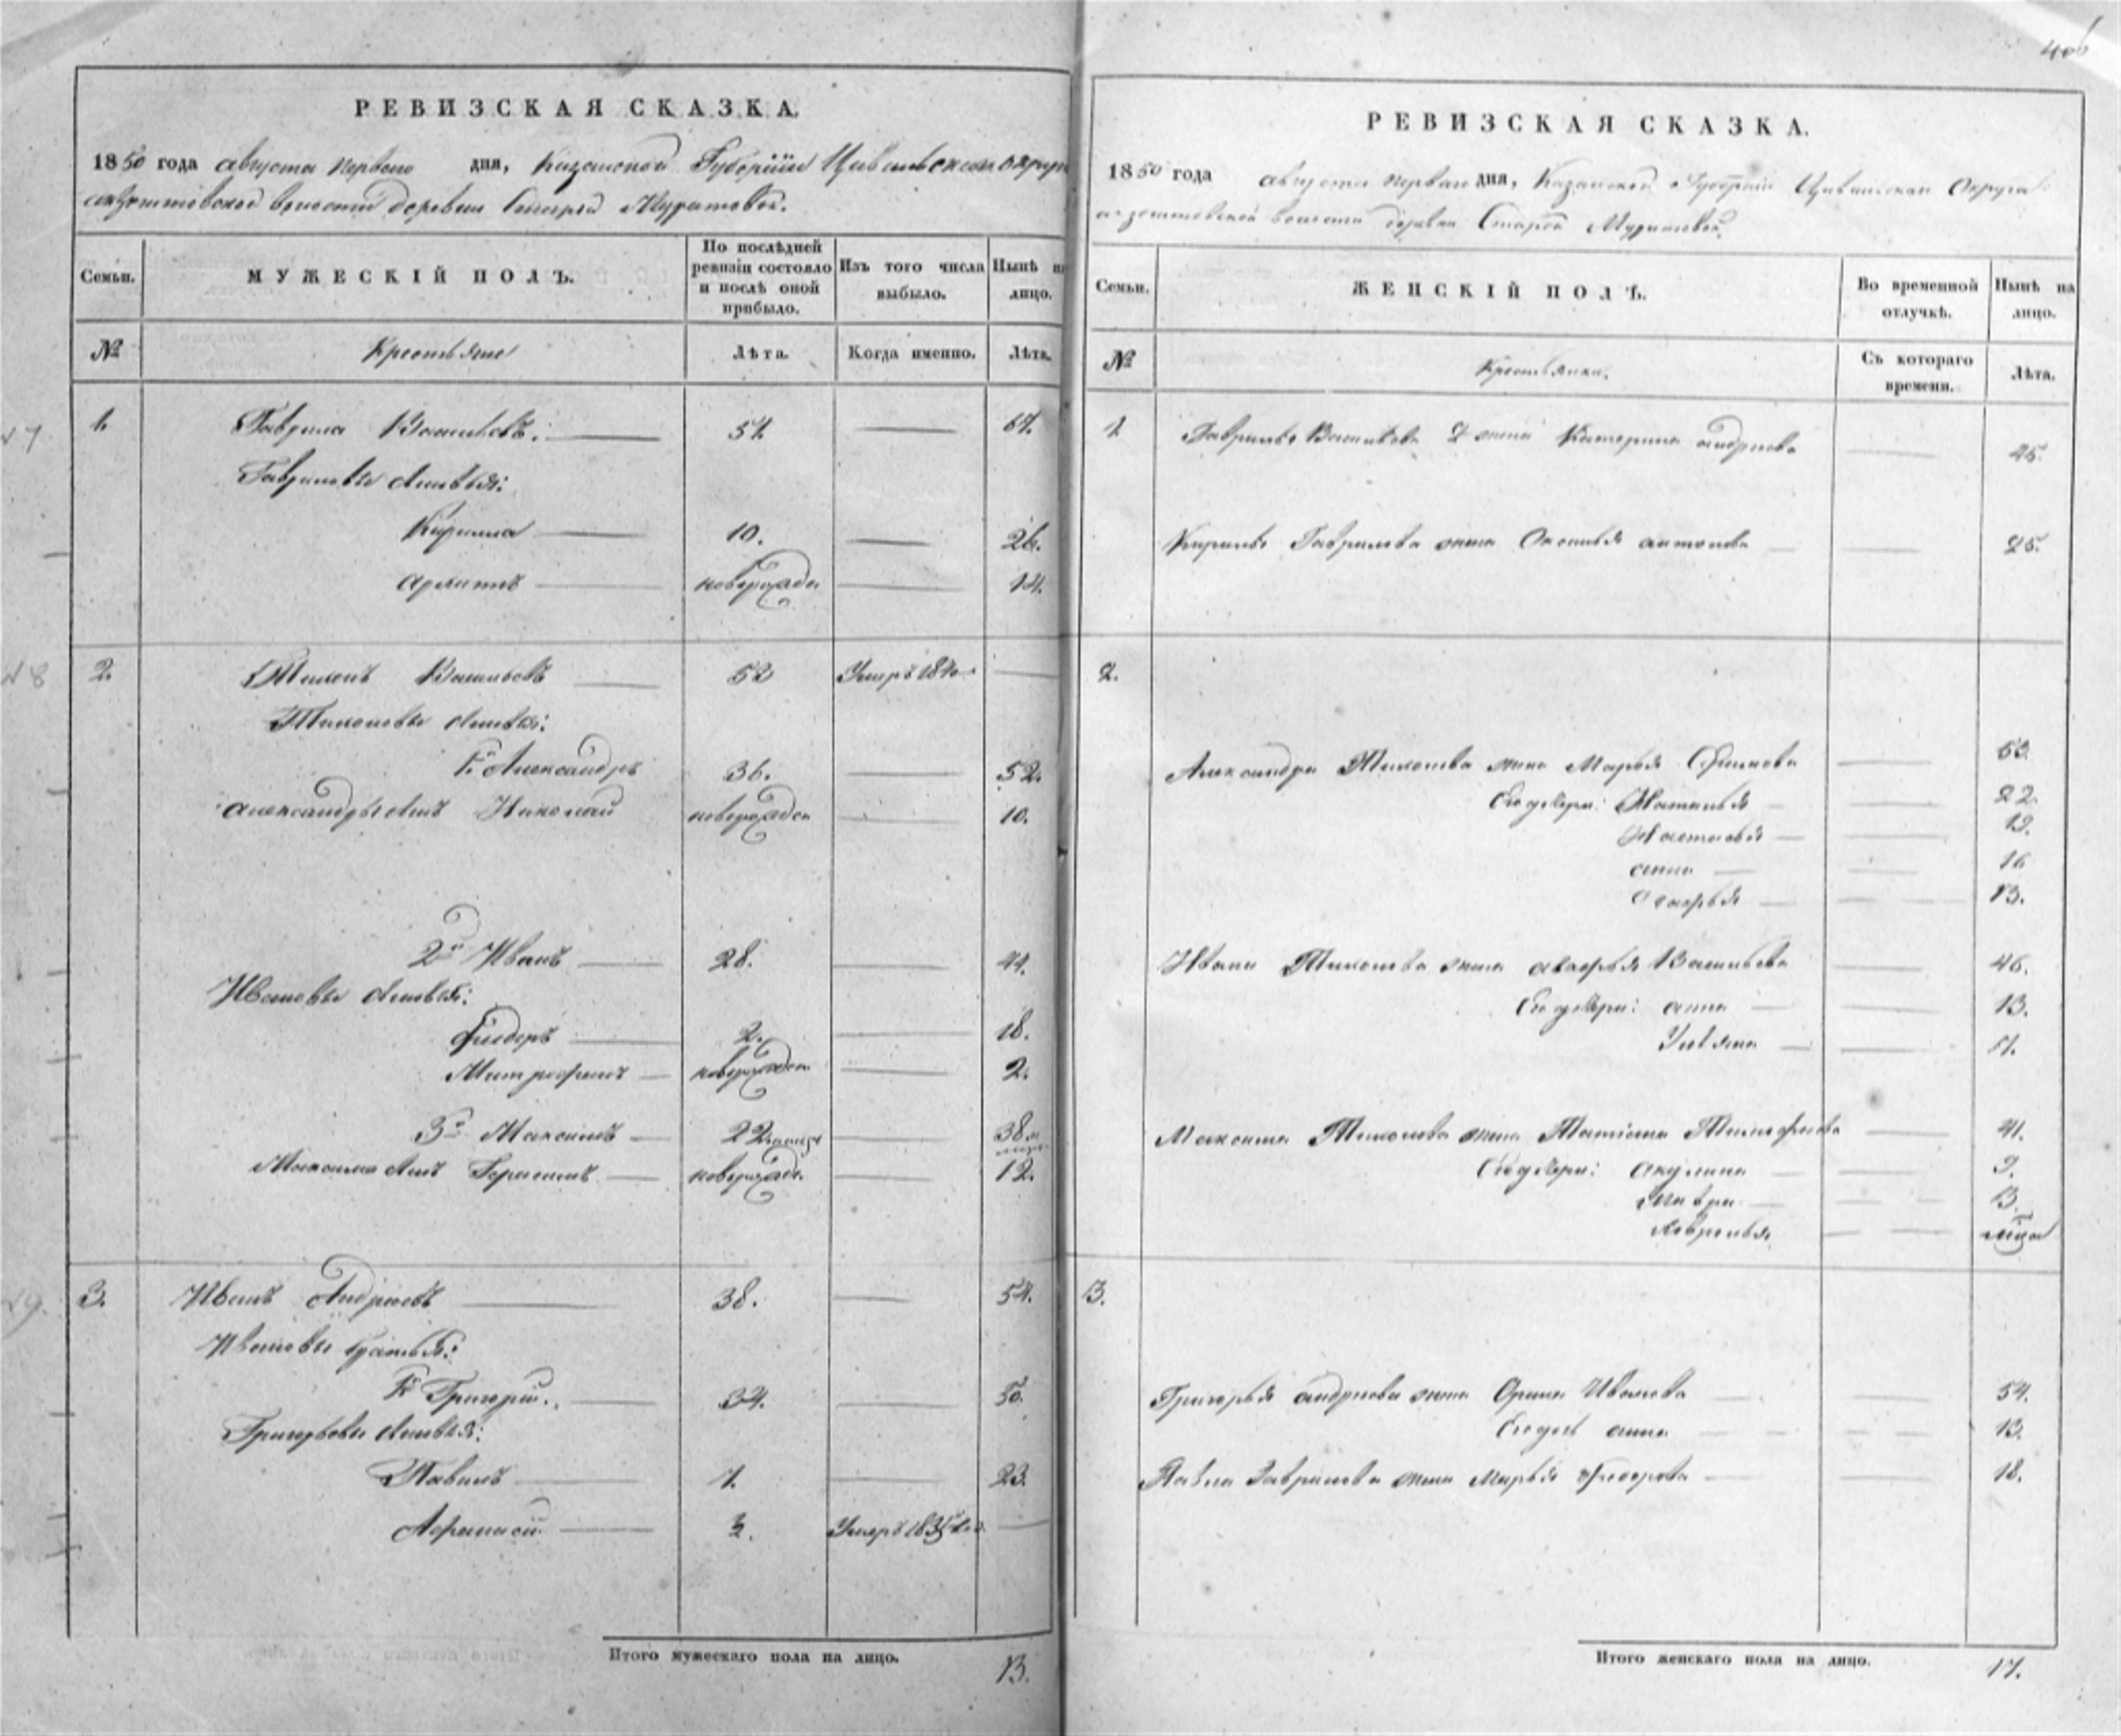 406
РЕВИЗСКАЯ СКАЗКА.
1850 года августа первого дня, Казанской Губернии Цивильскаго округа
волости деревни Старой Муратовой.
Семьи. МУЖЕСКІЙ ПОЛЪ. По послѣдней ревизіи состояло и послѣ оной прибыло. Изъ того числа выбыло. Нынѣ на лицо.
№ Крестьяне Лѣта. Когда именно. Лѣта.
1. Гаврила Васильевъ. 51 67.
Гавриловы сыновья:
Кирилла 10. 26.
новорожден 14.
2. Тихонъ Васильевъ 52 Умеръ 1840
Тихоновы сыновья:
1й Александръ 36. 52.
Александръ сынъ Николай новорожден 10.
2й Иванъ 28. 44.
Ивановы сыновья:
Фиодоръ 2. 18.
Митрофанъ новорожден 2.
3й Максимъ 22 38
Максима сынъ Герасимъ новорожде. 12.
3. Иванъ Андреевъ 38. 54.
Ивановы братья:
1й Григорій. 34. 50.
Григорьевы сыновья:
Павилъ 7. 23.
Афанасій ½. Умеръ 1835
Итого мужескаго пола на лицо. 13.
РЕВИЗСКАЯ СКАЗКА.
1850 года августа перваго дня, Казанской Губерніи Цивильскаго Округа
волости деревни Старой Муратовой.
Семьи. ЖЕНСКІЙ ПОЛЪ. Во временной отлучкѣ. Нынѣ на лицо.
№ Крестьянки. Съ котораго времени. Лѣта.
1 Гаврилы Васильева 2 жена Катерина Андреева 45.
Кирилы Гаврилова жена антонова 25.
2.
Александра Тихонова жена Марья 53.
Его дочери: Наталья 22.
Настасья 19.
анна 16
13.
Ивана Тихонова жена Васильева 46.
Его дочери: анна 13.
Ульяна 11.
Максима Тихонова жена Татiана Тимофеева 41.
Его дочери: акулина 9.
3.
3.
Григорья андреева жена Орина Иванова 54.
Его дочь анна 13.
Павла Гаврилова жена Марья Феодорова 18.
Итого женскаго пола на лицо. 17.